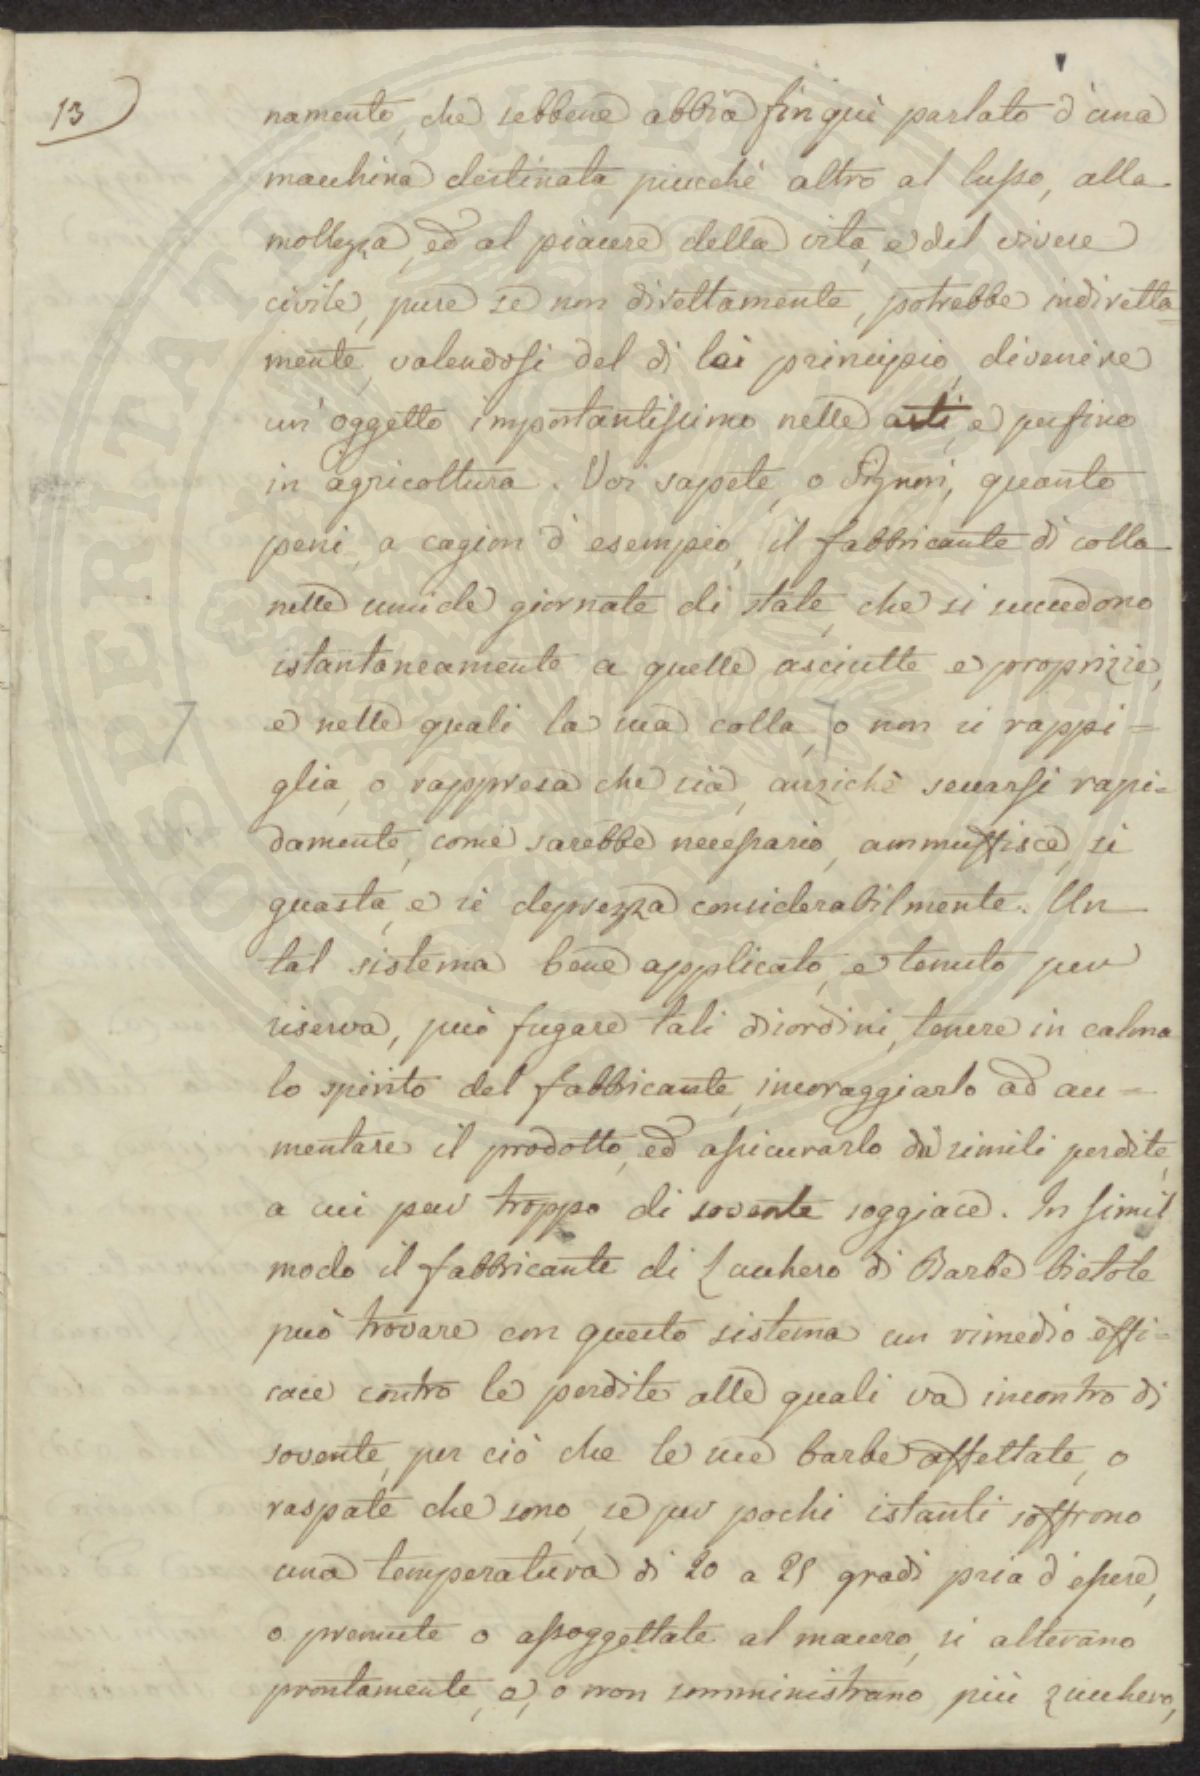 13
namente, che sebbene abbia fin quì parlato d'una
macchina destinata piucchè altro al lusso, alla
mollezza, ed al piacere della vita, e del vivere
civile, pure se non direttamente, potrebbe indiretta-
mente, valendosi del di lei principio, divenire
un'oggetto importantissimo nelle arti, e perfino
in agricoltura. Voi sapete, o Signori, quanto
peni, a cagion d'esempio, il fabbricante di colla
nelle umide giornate di state, che si succedono
istantaneamente a quelle asciutte e proprizie,
e nelle quali la sua colla, o non si rappi=
glia, o rappresa che sia, anzichè seccarsi rapi=
damente, come sarebbe necessario, ammuffisce, si
guasta, e si deprezza considerabilmente. Un
tal sistema bene applicato, e tenuto per
riserva, può fugare tali disordini, tenere in calma
lo spirito del fabbricante, incoraggiarlo ad au=
mentare il prodotto, ed assicurarlo da simili perdite,
a cui pur troppo di sovente soggiace. In simil
modo il fabbricante di Zucchero di Barbe bietole
può trovare con questo sistema un rimedio effi=
cace contro le perdite alle quali va incontro di
sovente, per ciò che le sue barbe affettate, o
raspate che sono, se per pochi istanti soffrono
una temperatura di 20 a 25 gradi pria d'essere,
o premute o assoggettate al macero, si alterano
prontamente, e, o non somministrano più zucchero,